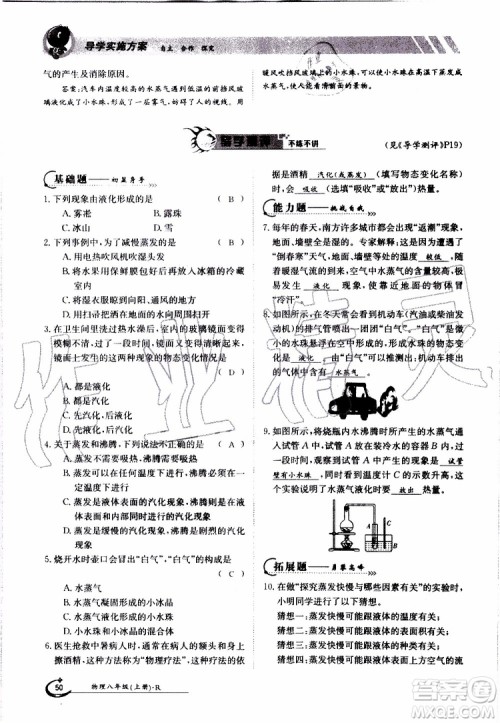 导学实施方案 自主 合作 探究
气的产生及消除原因。
答案:汽车内温度较高的水蒸气遇到低温的前挡风玻
璃液化成了小水珠
暖风吹挡风玻璃内侧,小水珠在高温下蒸发成
了水蒸气
导学测评 不练不讲
(见《导学测评》P19)
基础题——初显身手
1. 下列现象由液化形成的是 ( B )
A. 雾凇 B. 露珠
C. 冰山 D. 雪
2. 下列事例中,为了减慢蒸发的是 ( B )
A. 用电热吹风机吹潮头发
B. 将水果用保鲜膜包好放入冰箱
C. 将湿衣服展开晾在通风向阳处
D. 用扫帚把积在地面的水向周围扫开
3. 在卫生间里洗热水澡时,室内玻璃镜面变得
模糊不清,洗完后打开排气扇,过一会儿镜
面又变得清晰起来。
面上发生的这两种现象的物态变化情况是
( C )
A. 都是液化
B. 都是汽化
C. 先液化,后汽化
D. 先汽化,后液化
4. 关于蒸发和沸腾,以下说法不正确的是
( A )
A. 蒸发是吸热过程,沸腾是放热过程
B. 蒸发可以在任何温度下进行,沸腾只能
在一定的温度下进行
C. 蒸发是液体表面的汽化现象,沸腾是在
液体内部和表面同时发生的汽化现象
D. 蒸发是缓慢的汽化现象,沸腾是剧烈的
汽化现象
5. 烧开水时壶口会出现“白气”,这些“白气”是
( C )
A. 水蒸气
B. 水蒸气凝华成的小冰晶
C. 水蒸气液化成的小水珠
D. 小水珠和小冰晶的混合物
6. 医生抢救中暑病人时,有时在病人的身上
擦酒精,这种方法叫做“物理疗法”,其依
据是酒精 汽化(或蒸发) (填写物态变化名称)
会 吸收 (选填“吸收”或“放出”)热量。
能力题——挑战自我
7. 每年的春天,南方许多城市都会出现“返潮”现象,
地面、墙壁等非常潮湿。专家解释,这是由于遭遇
“倒春寒”天气,地面、墙壁等的温度 较低 ,随
着暖湿气流的到来,空气中水蒸气的含量增大,
容易发生 液化 现象,使靠近地面的物体容易
“冷汗”。
8. 如图所示,在冬天常常看到机动车(汽油或柴油发
动机)的排气管喷出一团团的“白气”,这是由很多
的小水珠悬浮在空气中形成的,形成水珠的物态变
化是 液化 。由“白气”可以推测出:机动车排
出的废气中含有 水蒸气 。
9. 如图所示,将烧瓶内水沸腾后产生的水蒸气通
入管 A 中,试管 A 在装冷水的容器 B 中。过一
段时间后,将试管从冷水中取出,会看到 试管
壁有小水珠 ,同时看到温度计 C 的示数升高,这
说明水蒸气液化时要 放出 热量。
拓展题——勇攀高峰
10. 在做“探究蒸发快慢与哪些因素有关”的实验中,
小明同学提出了以下猜想。
猜想一:蒸发快慢可能跟液体的温度有关;
猜想二:蒸发快慢可能跟液体的表面积有关;
猜想三:蒸发快慢可能跟液体表面上方空气
流动快慢有关。
50 物理八年级(上册)·R